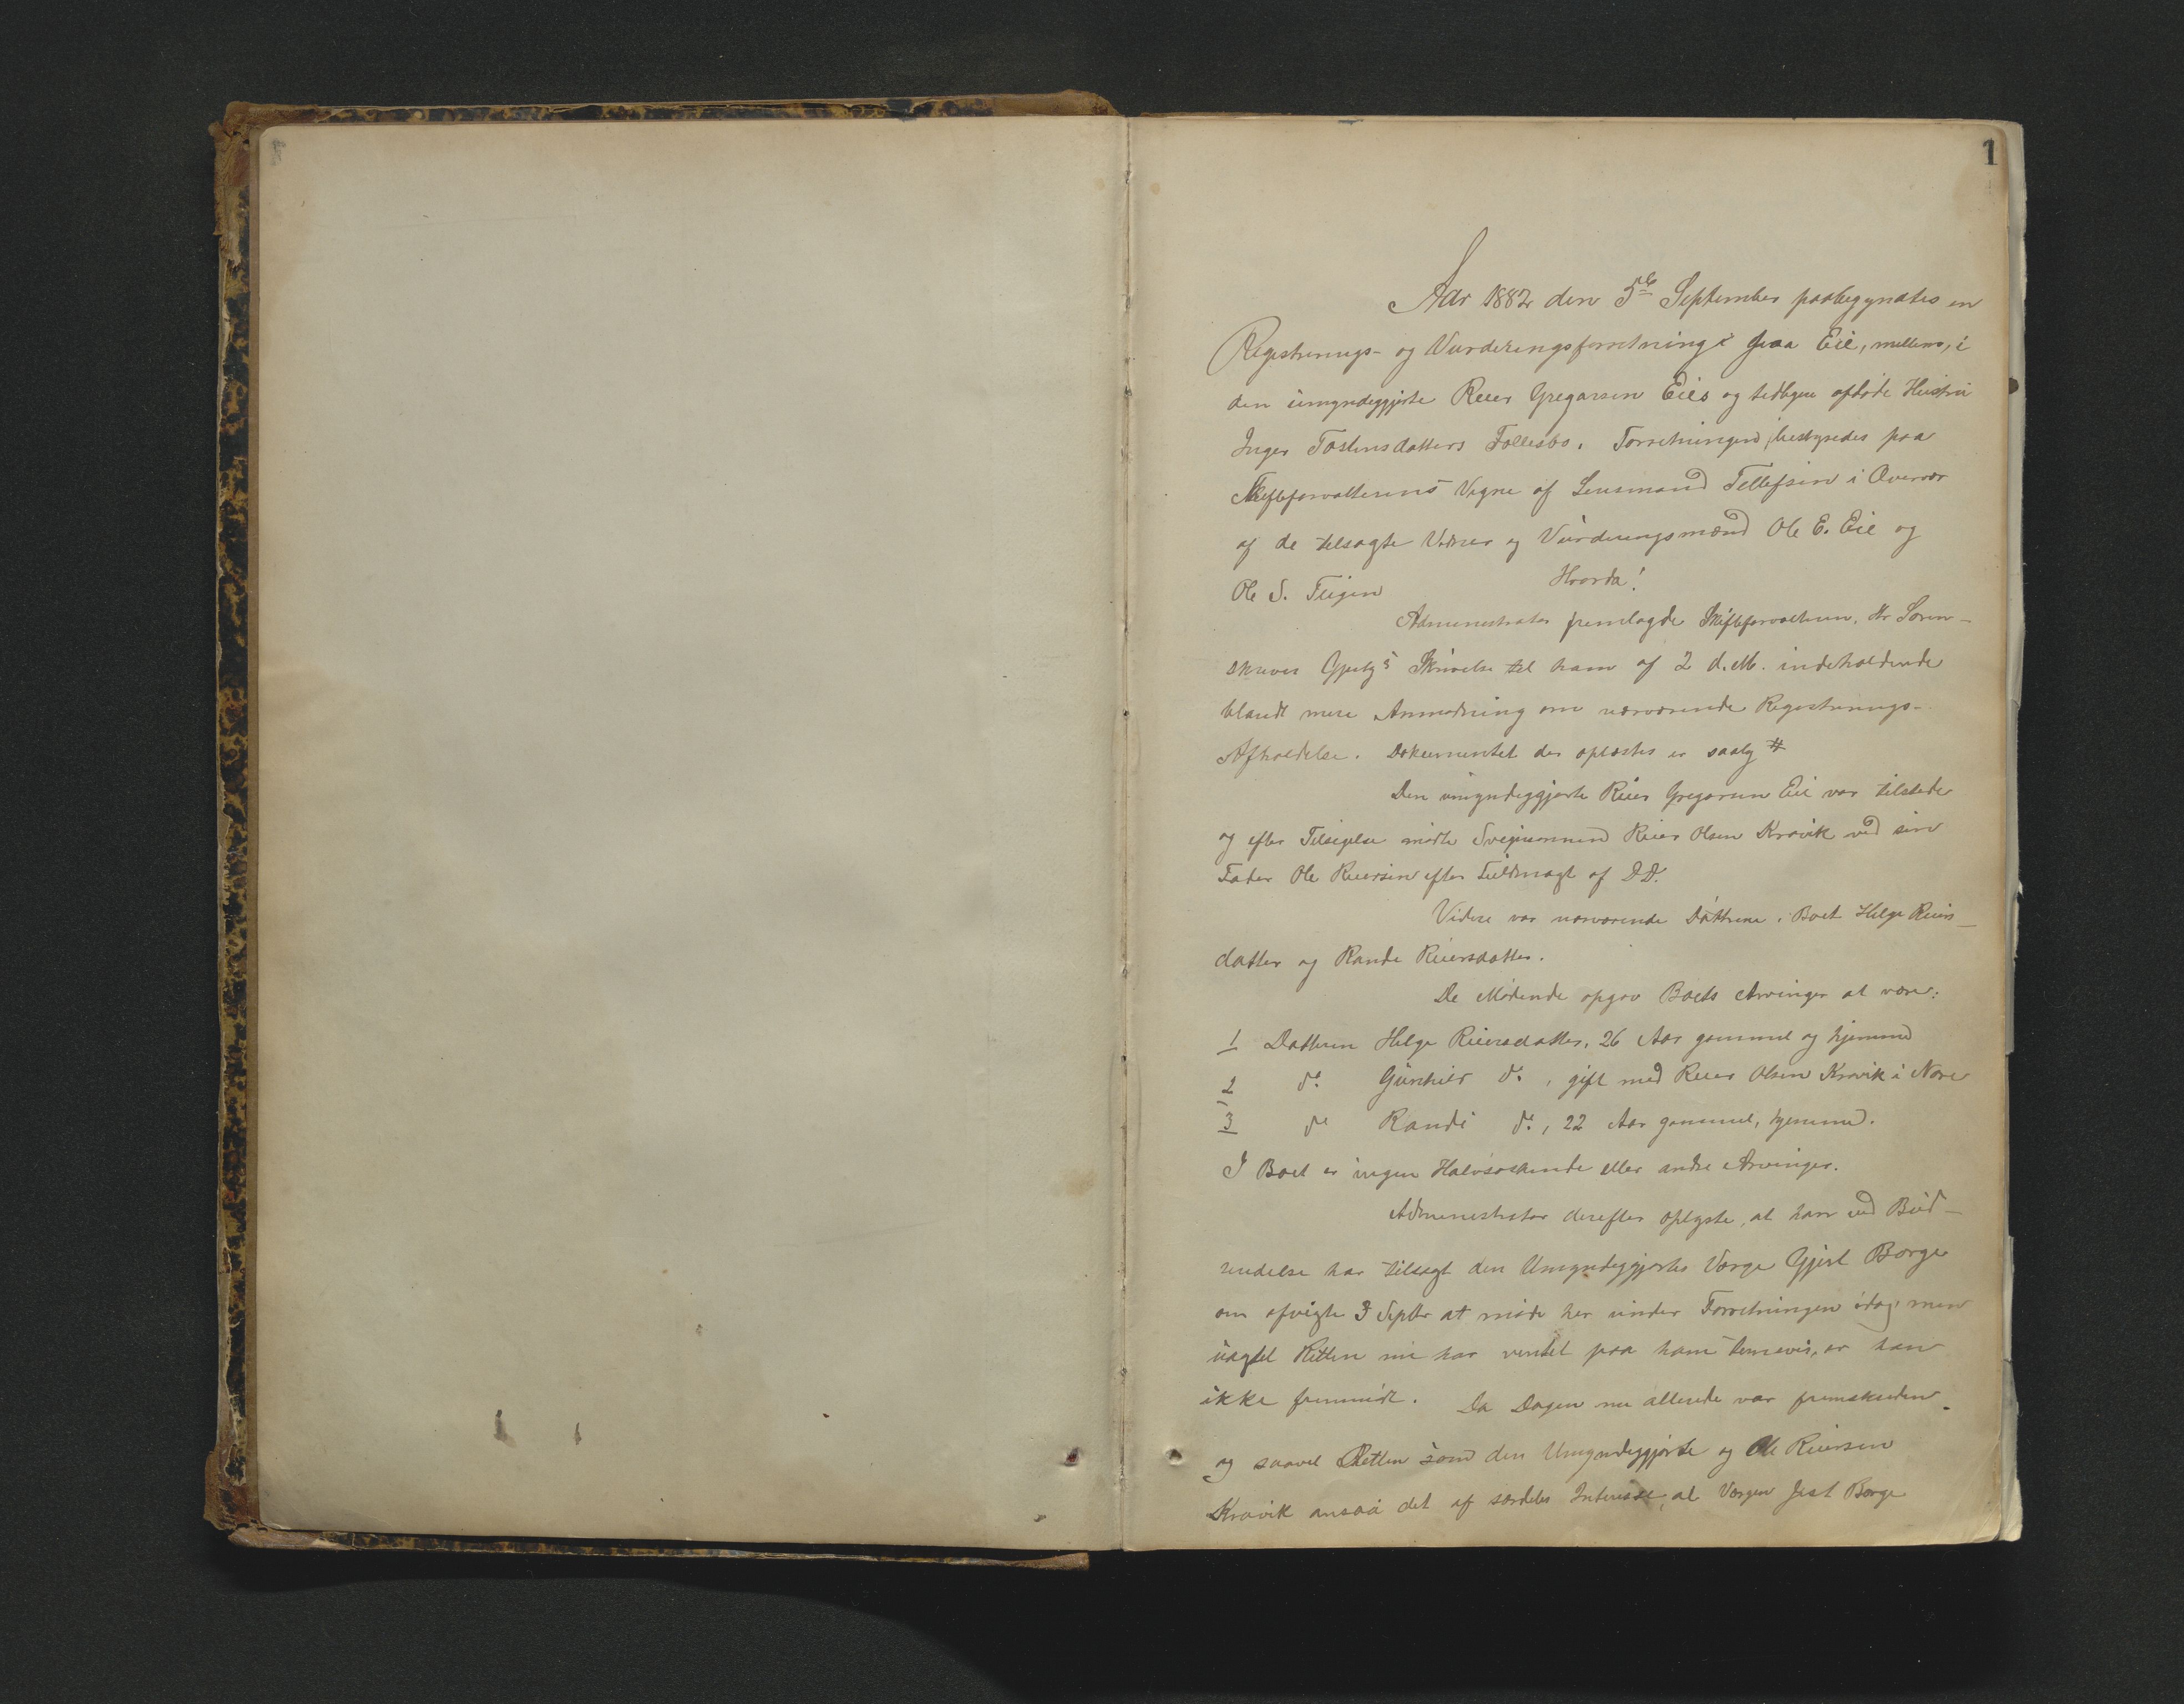 1
Aar 1882 den 5te September paabegyndtes en
Registrerings- og Vurderingsforretning paa Eie, mellem, i
den umyndiggjorte Reier Gregarsen Eies og tidligere afdøde Hustru
Inger Tostensdatters Fællesbo. Forretningen bestyredes paa
Skifteforvalterens Vegne af Lensmand Tellefsen i Overvær
af de tilsagte Vidner og Vurderingsmænd Ole E. Eie og
Ole S. Teigen Hvorda!
Administrator fremlagde Skifteforvalteren, Hr Soren-
skriver Skrivelse til ham af 2 d.M. indeholdende
blandt mere Anmodning om nærværende Registrerings-
Afholdelse. Dokumentet der oplæstes er saalg #
Den umyndiggjorte Reier Gregarsen Eie var tilstede
og efter Tilsigelse mødte Svigersønnen Reier Olsen Kravik ved sin
Fader Ole Reiersen efter Fuldmagt af D.D.
Videre var nærværende Døttrene i Boet Helge Reiers-
datter og Rande Reiersdatter.
De Mødende opgav Boets Arvinger at være:
1 Datteren Helge Reiersdatter, 26 Aar gammel og hjemme
2 do Gunhild do, gift med Reier Olsen Kravik i Nore
3 do Randi do, 22 Aar gammel, hjemme.
I Boet er ingen Halvsøskende eller andre Arvinger.
Administrator derefter oplyste, at han ved Bud-
sendelse har tilsagt den Umyndiggjortes Værge Gjest Borge
om afvigte 3 Septbr at møde her under Forretningen idag; men
uagtet Retten nu har ventet paa ham timevis, er han
ikke fremmødt. Da Dagen nu allerede var fremskreden
og saavel Retten som den Umyndiggjorte og Ole Reiersen
Kravik ansaa det af særdeles Interesse, at Værgen Jest Borge